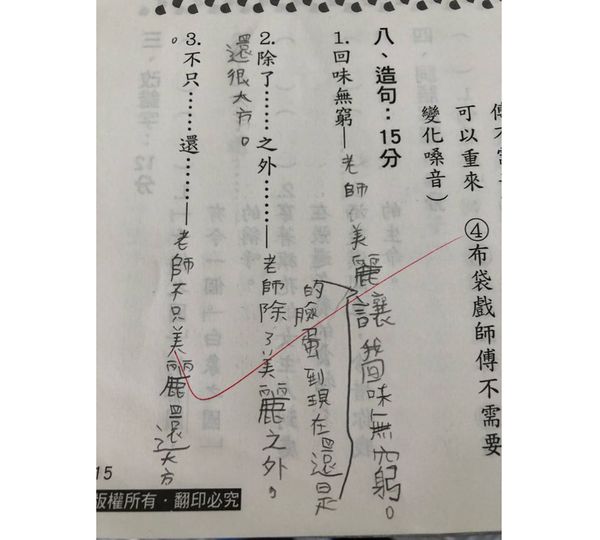 傅不需
④布袋戲師傅不需要
可以重來
變化嗓音）
八、造句：15分
1.回味無窮—老師美麗讓我回味無窮。
的臉蛋到現在還是
2.除了………之外………—老師除了美麗之外，
還很大方。
3.不只………還………—老師不只美麗還大方
。
15
版權所有．翻印必究